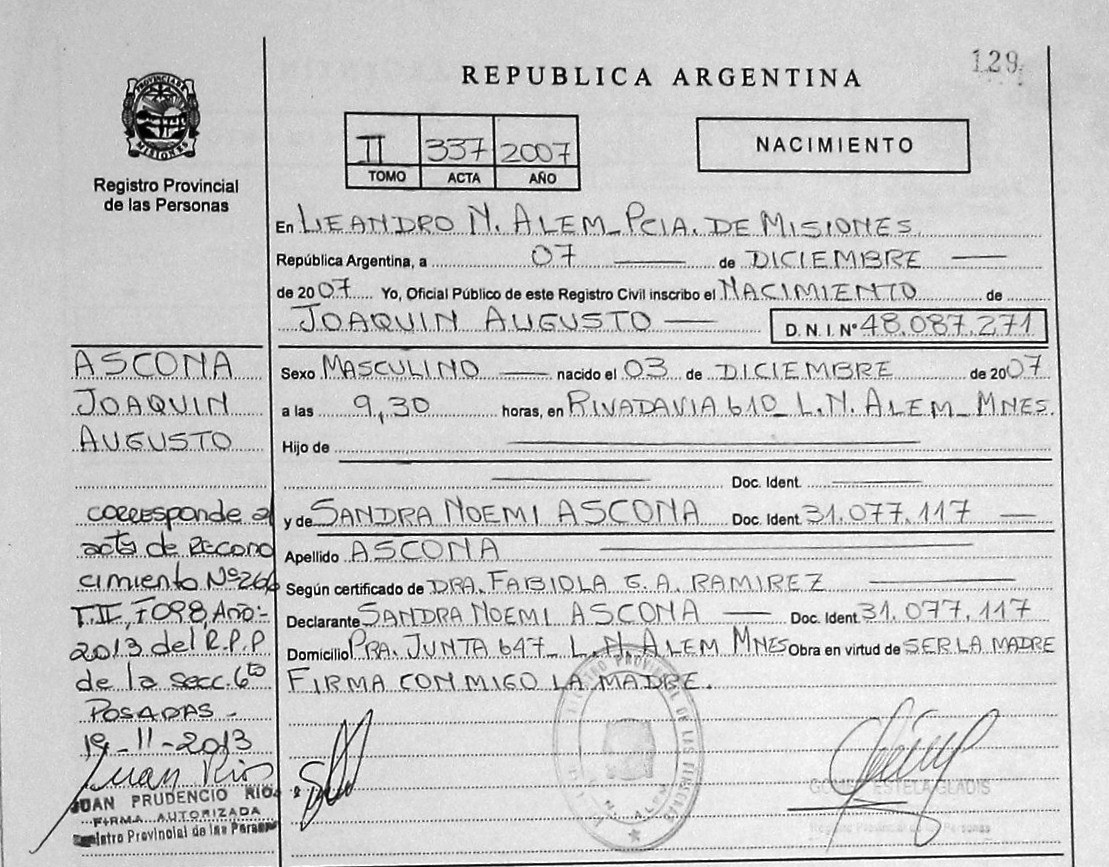 129
REPUBLICA ARGENTINA
PROVINCIA DE MISIONES
Registro Provincial
de las Personas
II 337 2007
TOMO ACTA AÑO
NACIMIENTO
En LEANDRO N. ALEM_PCIA. DE MISIONES.
República Argentina, a 07 de DICIEMBRE
de 2007 Yo, Oficial Público de este Registro Civil inscribo el NACIMIENTO de
JOAQUIN AUGUSTO D. N. I. Nº 48.087.271
ASCONA
JOAQUIN
AUGUSTO
Sexo MASCULINO nacido el 03 de DICIEMBRE de 2007
a las 9,30 horas, en RIVADAVIA 610_L.N. ALEM_MNES.
Hijo de
Doc. Ident.
y de SANDRA NOEMI ASCONA Doc. Ident. 31.077.117
Apellido ASCONA
Según certificado de DRA. FABIOLA G.A. RAMIREZ
Declarante SANDRA NOEMI ASCONA Doc. Ident. 31.077.117
Domicilio PRA. JUNTA 647_ L.N. ALEM MNES Obra en virtud de SER LA MADRE
FIRMA CONMIGO LA MADRE.
corresponde al
acta de Recono
cimiento Nº266
T.II, F098, Año:-
2013 del R.P.P
de la secc. 6ta
POSADAS -
19-11-2013
Juan Rios
JUAN PRUDENCIO RIOS
FIRMA AUTORIZADA
Registro Provincial de las Personas
REGISTRO PROVINCIAL DE LAS PERSONAS
L. N. ALEM
GOMEZ ESTELA GLADIS
Registro Provincial de las Personas